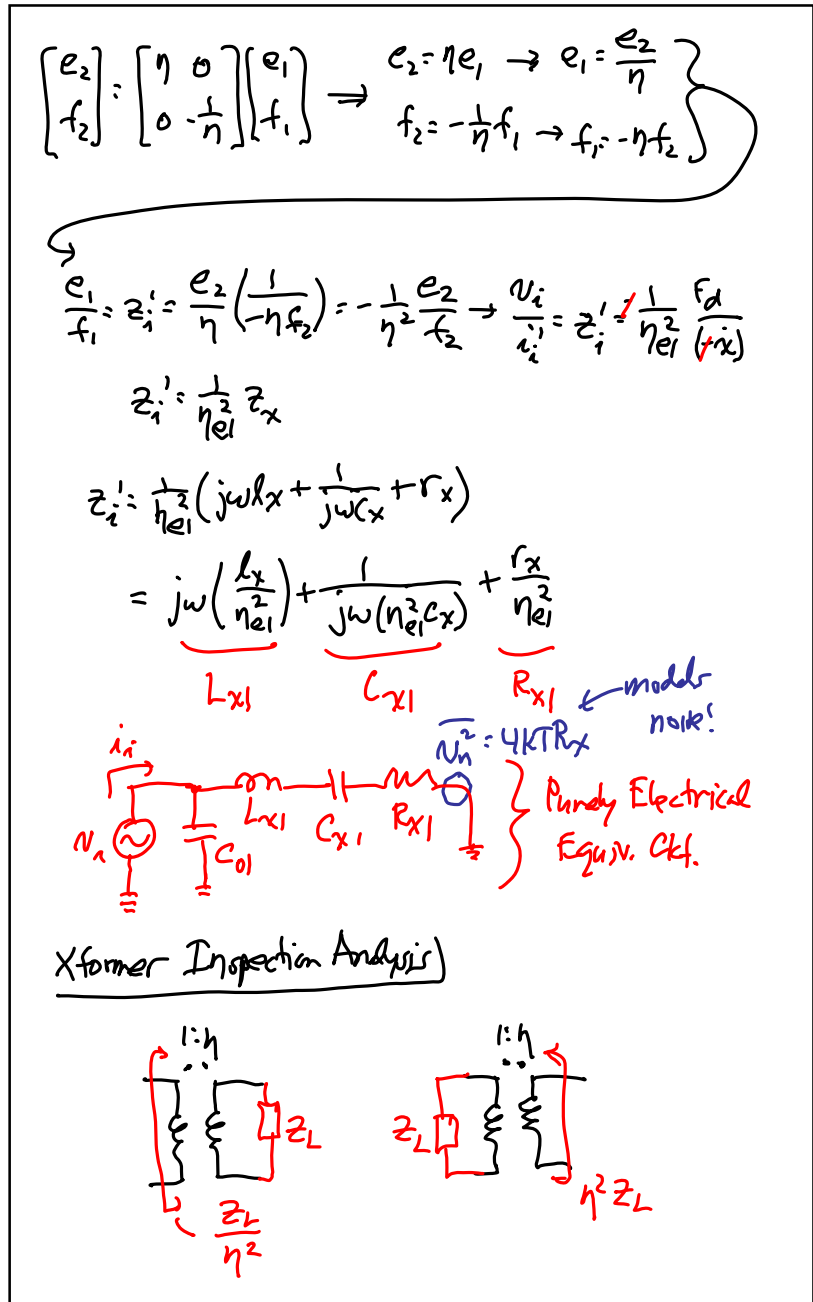 [e₂ f₂] = [η 0 0 -1/η][e₁ f₁] ⟹ e₂ = ηe₁ → e₁ = e₂/η
f₂ = -1/η f₁ → f₁ = -ηf₂
e₁/f₁ = z_i' = e₂/η (1/(-ηf₂)) = - 1/η² e₂/f₂ → v_i/i_i' = z_i' = - 1/η_e1² F_d/(-ẋ)
z_i' = 1/η_e1² z_x
z_i' = 1/η_e1² (jωl_x + 1/(jωc_x) + r_x)
= jω(l_x/η_e1²) + 1/(jω(η_e1² c_x)) + r_x/η_e1²
L_x1 C_x1 R_x1 models
v_n² = 4kTR_x noise!
i_i
L_x1 C_x1 R_x1 Purely Electrical
v_i C_01 Equiv. Ckt.
Xformer Inspection Analysis
1:η 1:η
Z_L Z_L
Z_L/η² η² Z_L